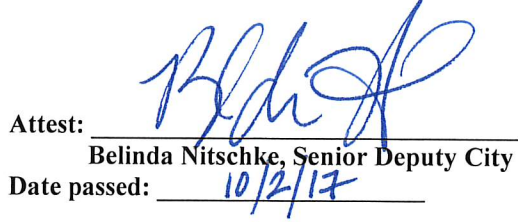 Attest:
Belinda Nitschke, Senior Deputy City
Date passed: 10/2/17